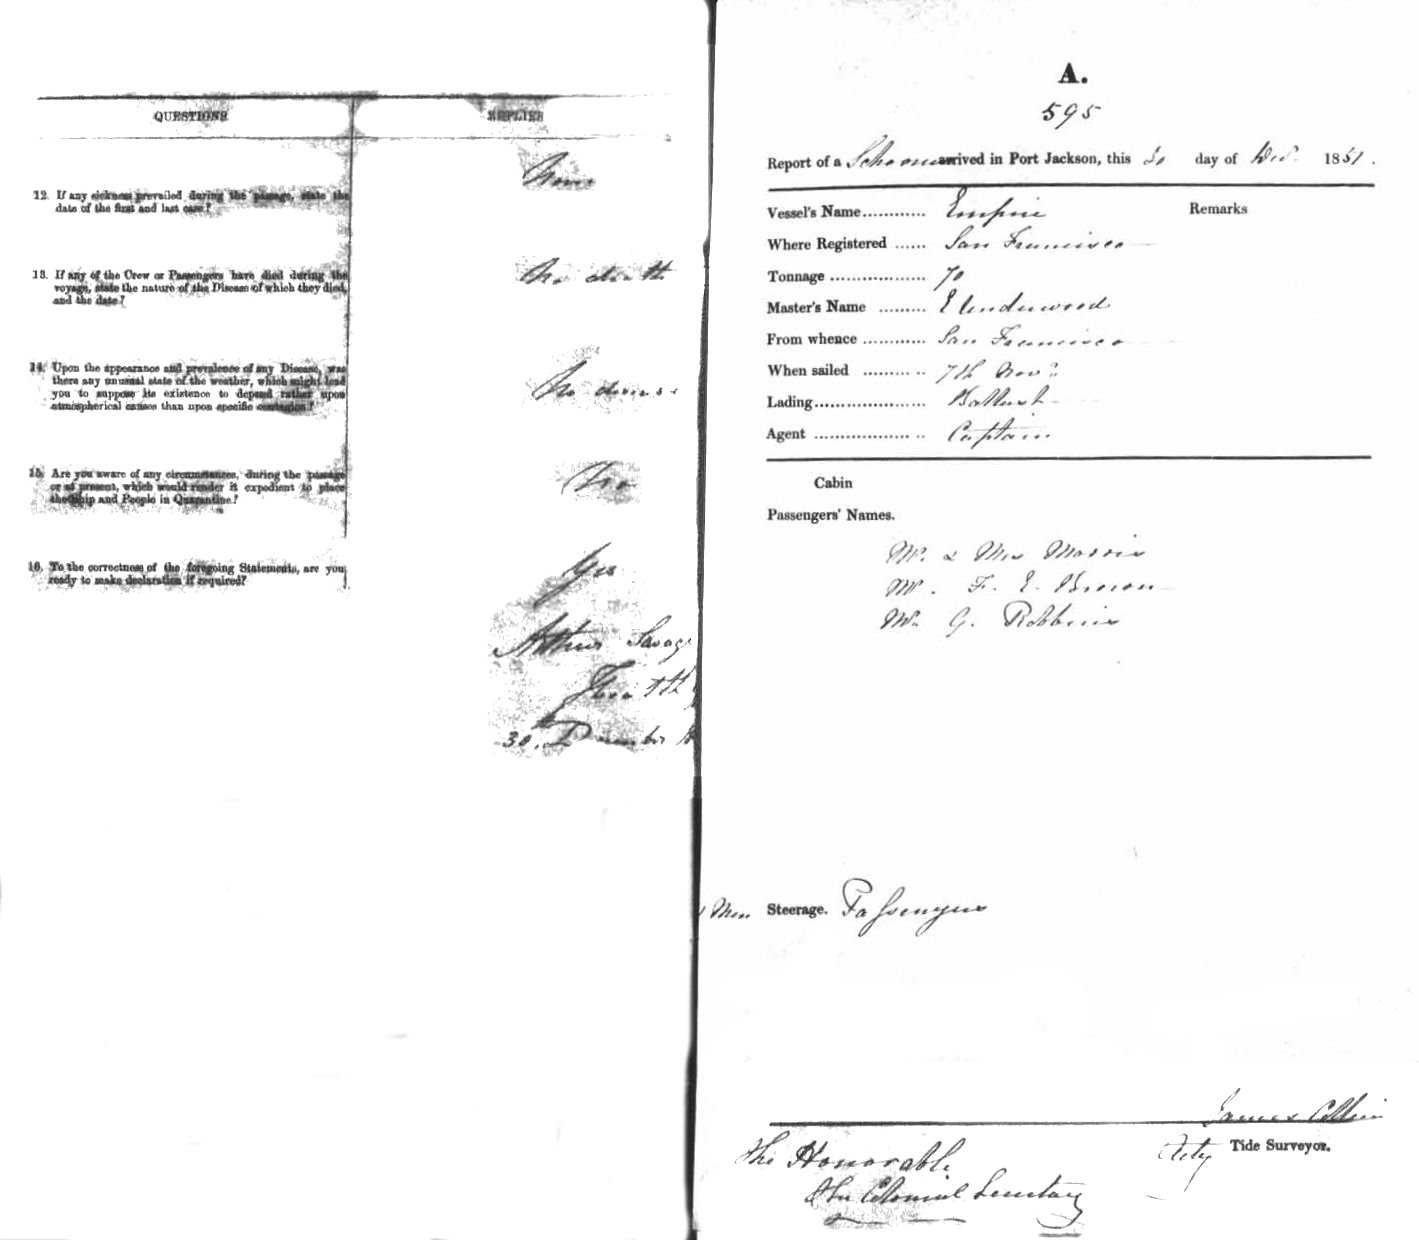 QUESTIONS
REPLIES
12. If any sickness prevailed during the passage, state the
date of the first and last case?
None
13. If any of the Crew or Passengers have died during the
voyage, state the nature of the Disease of which they died,
and the date?
No death
14. Upon the appearance and prevalence of any Disease, was
there any unusual state of the weather, which might lead
you to suppose its existence to depend rather upon
atmospherical causes than upon specific contagion?
No disease
15. Are you aware of any circumstances, during the passage
or at present, which would render it expedient to place
the Ship and People in Quarantine?
No
16. To the correctness of the foregoing Statements, are you
ready to make declaration if required?
Yes
Arthur Savag
30. December
A.
595
Report of a Schooner arrived in Port Jackson, this 30 day of Decr. 1851.
Vessel's Name............ Empire
Remarks
Where Registered ...... San Francisco
Tonnage .................. 70
Master's Name ......... E Underwood
From whence ............ San Francisco
When sailed ............ 7th Novr.
Lading..................... Ballast
Agent .................... Captain
Cabin
Passengers' Names.
Mr. & Mrs Morris
Mr. F. E. Brown
Mr. G. Robbins
Men Steerage. Passengers
James
Actg Tide Surveyor.
The Honorable
The Colonial Secretary